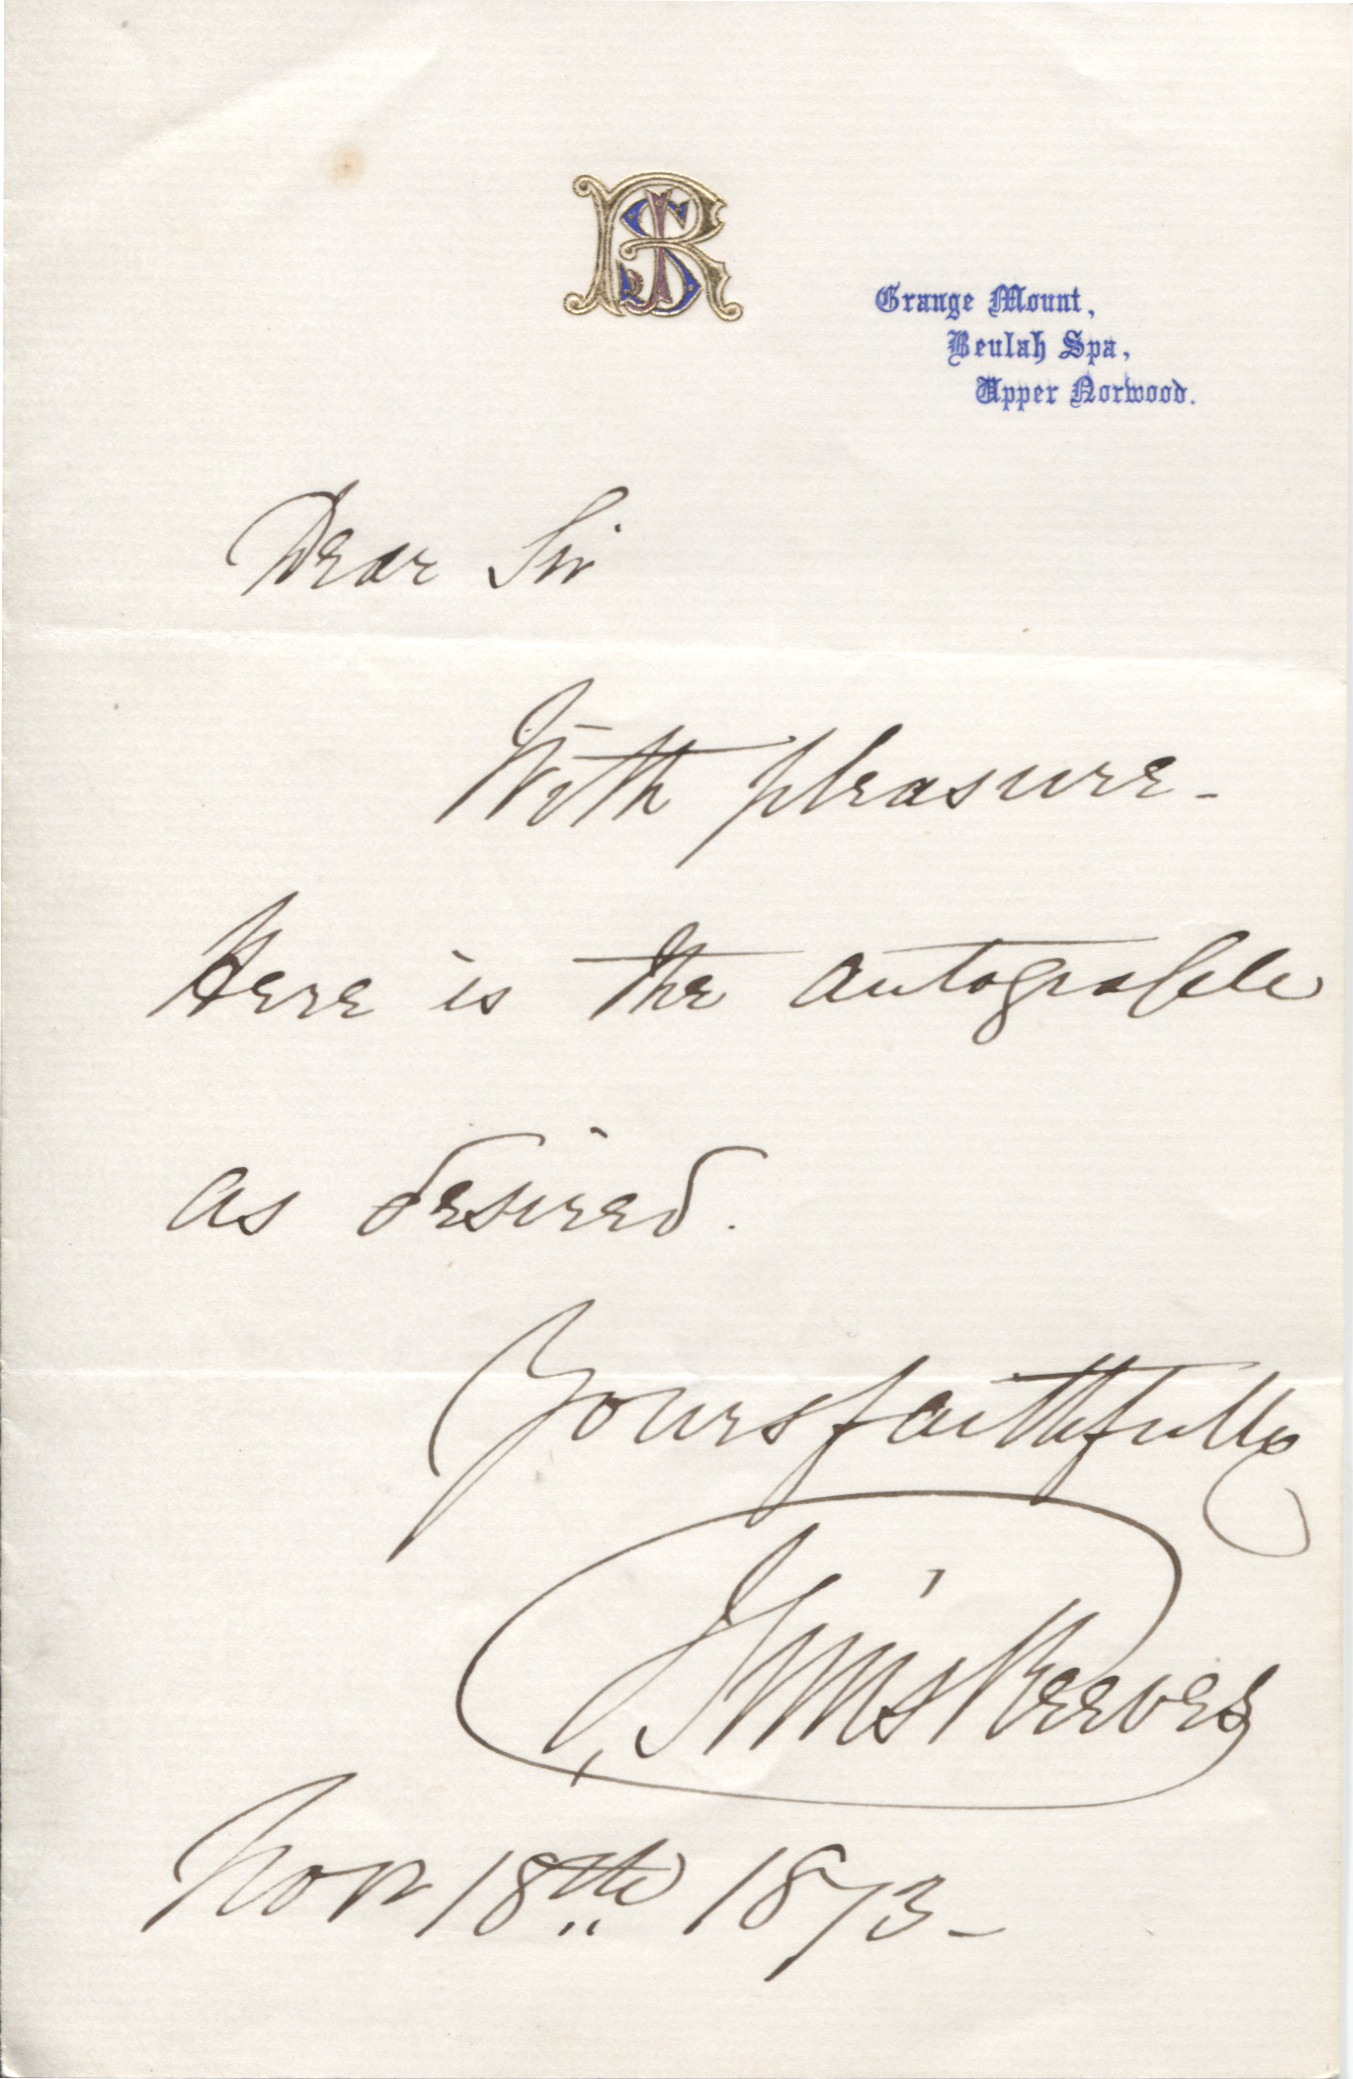 JSR
Grange Mount,
Beulah Spa,
Upper Norwood.
Dear Sir
With pleasure -
Here is the autograph
as desired.
Yours faithfully
J Sims Reeves
Nov 18th 1873 -